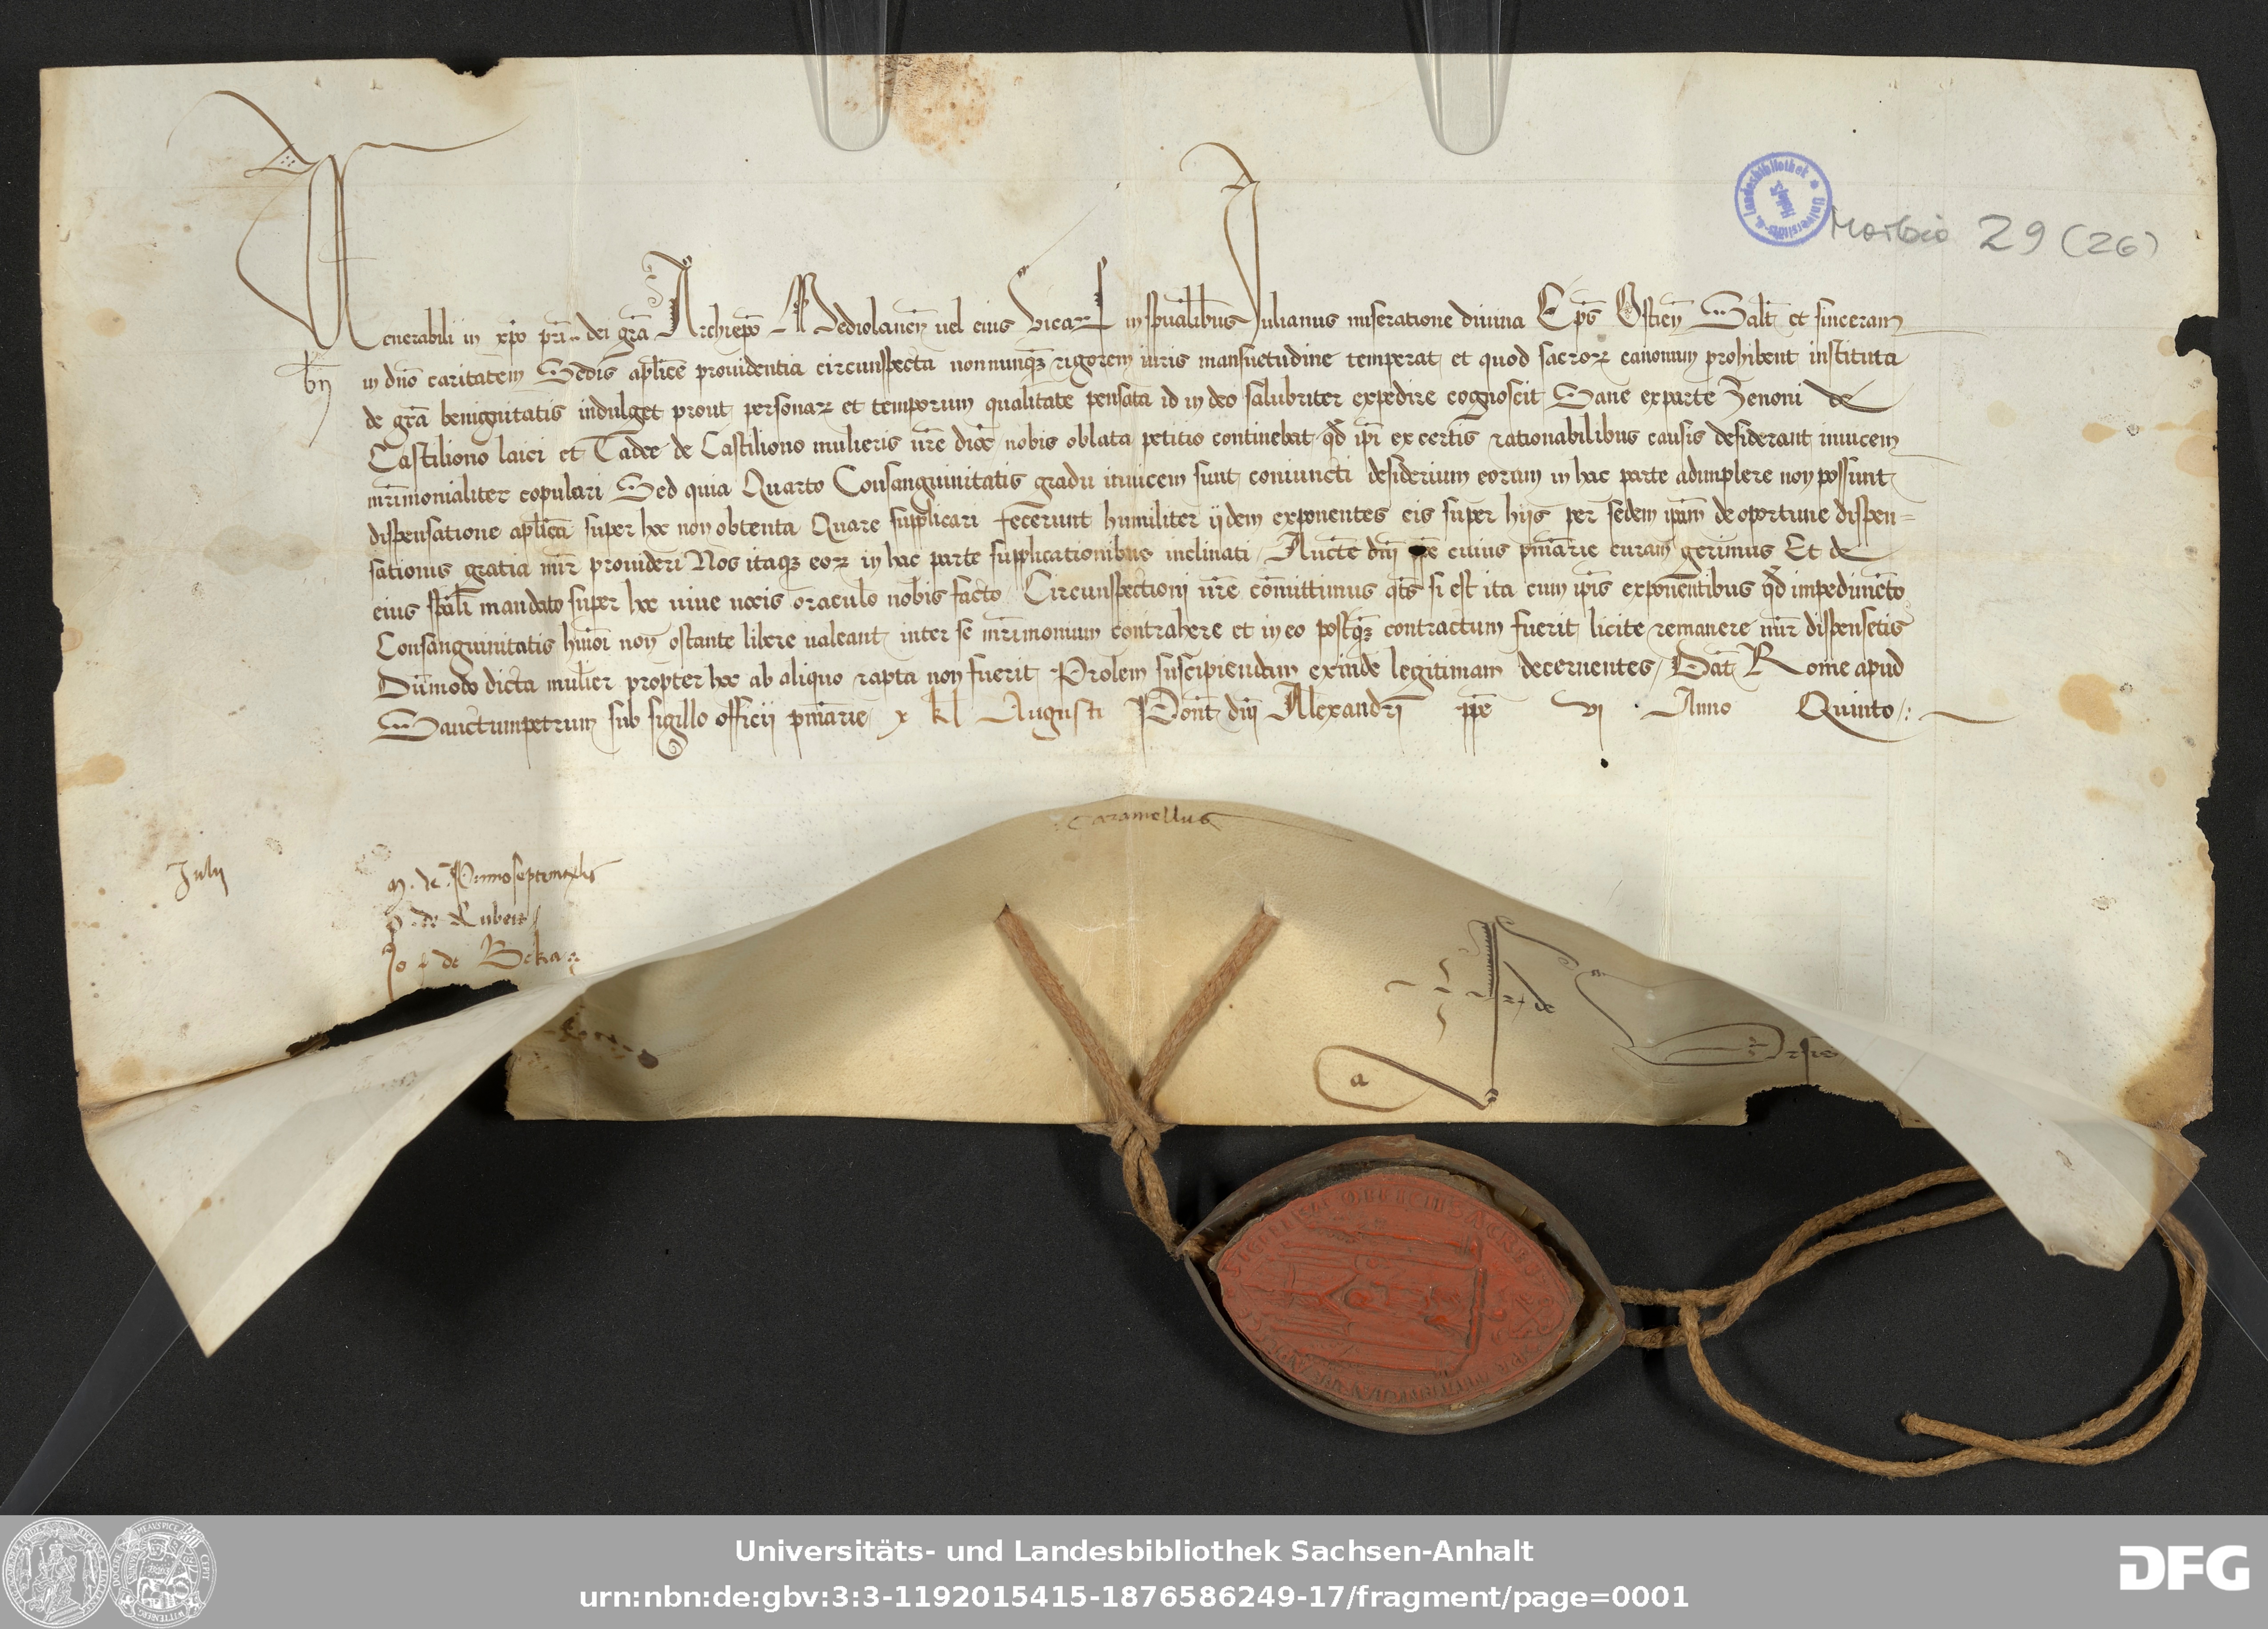 Morbio 29 (26)
Venerabili in xpo pri .. dei gra Archiepo Mediolanen vel eius Vicar in spualibus Iulianus miseratione divina Eps Ostien Salt et sinceram
bn
in dno caritatem Sedis aplice providentia circunspecta nonnunqz rigorem iuris mansuetudine temperat et quod sacror canonum prohibent instituta
de gra benignitatis indulget prout personar et temporum qualitate pensata id in deo salubriter expedire cognoscit Sane exparte Zenoni de
Castiliono laici et Tadee de Castiliono mulieris vre dioc nobis oblata petitio continebat qd ipi ex certis rationabilibus causis desiderant invicem
mrimonialiter copulari Sed quia Quarto Consanguinitatis gradu invicem sunt coniuncti desiderium eorum in hac parte adimplere non possunt
dispensatione aplica super hoc non obtenta Quare supplicari fecerunt humiliter iidem exponentes eis super hiis per sedem ipam de oportune dispen=
sationis gratia mir provideri Nos itaqz eor in hac parte supplicationibus inclinati Aucte dni ppe cuius pniarie curam gerimus Et de
eius spali mandato super hoc vive vocis oraculo nobis facto Circunspectioni vre comittimus qts si est ita cum ipis exponentibus qd impedimeto
Consanguinitatis hmoi non ostante libere valeant inter se mrimonium contrahere et in eo postqz contractum fuerit licite remanere mir dispensetis
Dummodo dicta mulier propter hoc ab aliquo rapta non fuerit Prolem suscipiendam exinde legitimam decernentes Dat Rome apud
Sanctumpetrum sub sigillo officii pniarie x kl Augusti Pont dni Alexandri ppe vj Anno Quinto
Caramellus
Julij
de Rubeis
Jo de Beka
de
a
Universitäts- und Landesbibliothek Sachsen-Anhalt
urn:nbn:de:gbv:3:3-1192015415-1876586249-17/fragment/page=0001
DFG